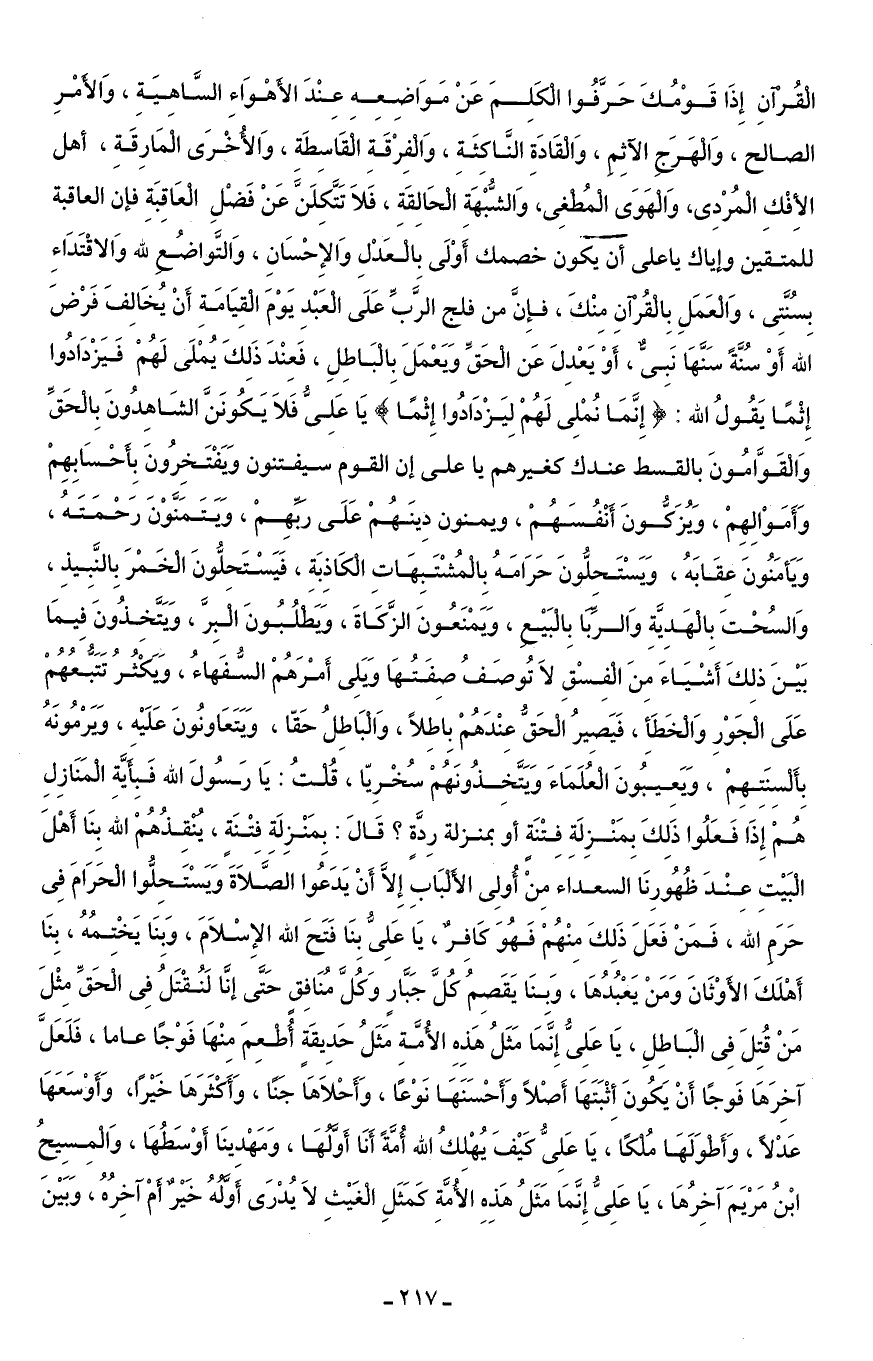 الْقُرْآنِ إِذَا قَوْمُكَ حَرَّفُوا الْكَلِمَ عَنْ مَوَاضِعِهِ عِنْدَ الأَهْوَاءِ السَّاهِيَةِ ، وَالأَمْرِ
الصالح ، وَالْهَرَجِ الآثِمِ ، وَالْقَادَةِ النَّاكِثَةِ ، وَالْفِرْقَةِ الْقَاسِطَةِ ، وَالأُخْرَى الْمَارِقَةِ ، أهل
الإفْكِ الْمُرْدِى، وَالْهَوَى الْمُطْغِى، وَالشُّبْهَةِ الْحَالِقَةِ ، فَلاَ تَتَّكِلَنَّ عَنْ فَضْلِ الْعَاقِبَةِ فإن العاقبة
للمتقين وإياك ياعلى أن يكون خصمك أَوْلَى بِالْعَدْلِ وَالإِحْسَانِ ، وَالتَّوَاضُعِ لله وَالاقْتِدَاءِ
بِسُنَّتِى ، وَالْعَمَلِ بِالْقُرْآنِ مِنْكَ ، فَإِنَّ من فلج الرَّبِّ عَلَى الْعَبْدِ يَوْمَ الْقِيَامَةِ أَنْ يُخَالِفَ فَرْضَ
الله أَوْ سُنَّةً سَنَّهَا نَبِىٌّ ، أَوْ يَعْدِلَ عَنِ الْحَقِّ وَيَعْمَلَ بِالْبَاطِلِ ، فَعِنْدَ ذَلِكَ يُمْلَى لَهُمْ فَيَزْدَادُوا
إِثْمًا يَقُولُ الله : ﴿ إِنَّمَا نُمْلِى لَهُمْ لِيَزْدَادُوا إِثْمًا ﴾ يَا عَلِىُّ فَلاَ يَكُونَنَّ الشَاهِدُونَ بِالْحَقِّ
وَالْقَوَّامُونَ بالقسط عندك كغيرهم يا على إن القوم سيفتنون وَيَفْتَخِرُونَ بِأَحْسَابِهِمْ
وَأَمْوَالِهِمْ ، وَيُزَكُّونَ أَنْفُسَهُمْ ، ويمنون دِينَهُمْ عَلَى رَبِّهِمْ ، وَيَتَمَنَّوْنَ رَحْمَتَهُ ،
وَيَأمَنُونَ عِقَابَهُ ، وَيَسْتَحِلُّونَ حَرَامَهُ بِالْمُشْتَبِهَاتِ الْكَاذِبَةِ ، فَيَسْتَحِلُّونَ الْخَمْرَ بِالنَّبِيذِ ،
وَالسُّحْتَ بِالْهَدِيَّةِ وَالرِّبَا بِالْبَيْعِ ، وَيَمْنَعُونَ الزَّكَاةَ ، وَيَطْلُبُونَ الْبِرَّ ، وَيَتَّخِذُونَ فِيمَا
بَيْنَ ذَلِكَ أَشْيَاءَ مِنَ الْفِسْقِ لاَ تُوصَفُ صِفَتُهَا وَيَلِى أَمْرَهُمُ السُّفَهَاءُ ، وَيَكْثُرُ تَتَبُّعُهُمْ
عَلَى الْجَوْرِ وَالْخَطَأ ، فَيَصِيرُ الْحَقُّ عِنْدَهُمْ بِاطِلاً ، وَالْبَاطِلُ حَقّا ، وَيَتَعَاوَنُونَ عَلَيْهِ ، وَيَرْمُونَهُ
بِألْسِنَتِهِمْ ، وَيَعِيبُونَ الْعُلَمَاءَ وَيَتَّخِذُونَهُمْ سُخْرِيّا ، قُلْتُ : يَا رَسُولَ الله فَبِأَيَّةِ الْمَنَازِلِ
هُمْ إِذَا فَعَلُوا ذَلِكَ بِمَنْزِلَةِ فِتْنَةٍ أو بمنزلة رِدَّةٍ ؟ قَالَ : بِمَنْزِلَةِ فِتْنَةٍ ، يُنْقِذُهُمُ الله بِنَا أَهْلَ
الْبَيْتِ عِنْدَ ظُهُورِنَا السعداء مِنْ أُولِى الأَلْبَابِ إِلاَّ أَنْ يَدَعُوا الصَّلاَةَ وَيَسْتَحِلُّوا الْحَرَامَ فِى
حَرَمِ الله ، فَمَنْ فَعَلَ ذَلِكَ مِنْهُمْ فَهُوَ كَافِرٌ ، يَا عَلِىُّ بِنَا فَتَحَ الله الإِسْلاَمَ ، وَبِنَا يَخْتِمُهُ ، بِنَا
أَهْلَكَ الأَوْثَانَ وَمَنْ يَعْبُدُهَا ، وَبِنَا يَقْصِمُ كُلَّ جَبَّارٍ وَكُلَّ مُنَافِقٍ حَتَّى إِنَّا لَنُقْتَلُ فِى الْحَقِّ مِثْلَ
مَنْ قُتِلَ فِى الْبَاطِلِ ، يَا عَلِىُّ إِنَّمَا مَثَلُ هَذِهِ الأُمَّةِ مَثَلُ حَدِيقَةٍ أُطْعِمَ مِنْهَا فَوْجًا عاما ، فَلَعَلَّ
آخِرَهَا فَوجًا أَنْ يَكُونَ أَثْبَتَهَا أَصْلاً وَأَحْسَنَهَا نَوْعًا ، وَأَحْلاَهَا جَنًا ، وَأَكْثَرَهَا خَيْرًا، وَأَوْسَعَهَا
عَدْلاً ، وَأَطْوَلَهَا مُلْكًا ، يَا عَلِىُّ كَيْفَ يُهْلِكُ الله أُمَّةً أَنَا أَوَّلُهَا ، وَمَهْدِينَا أَوْسَطُهَا ، وَالْمَسِيحُ
ابْنُ مَرْيَمَ آخِرُهَا ، يَا عَلِىُّ إِنَّمَا مَثَلُ هَذِهِ الأُمَّةِ كَمَثَلِ الْغَيْثِ لاَ يُدْرَى أَوَّلُهُ خَيْرٌ أَمْ آخِرُهُ ، وَبَيْنَ
ـ ٢١٧ ـ